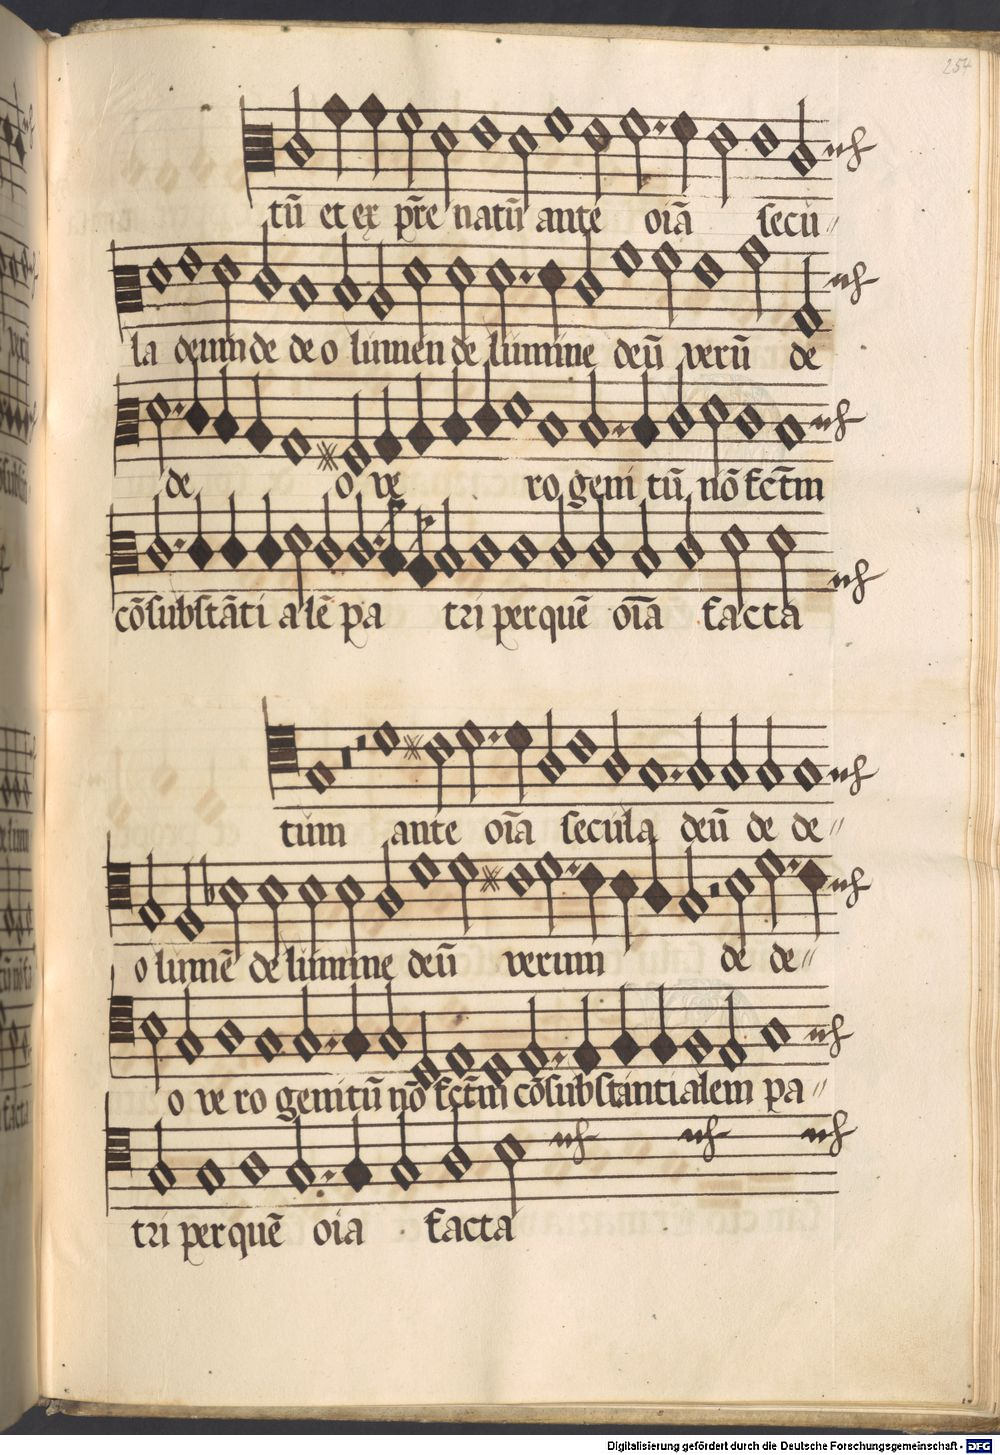 254
tū et ex pr̄e natū ante oīa secu〃
la deum de deo lumen de lumine deū verū de
de o ve ro geni tū nō fct̄m
cōsubstāti alē pa tri per quē oīa facta
tum ante oīa secula deū de de〃
o lumē de lumine deū verum de de〃
o ve ro genitū nō fct̄m cōsubstantialem pa〃
tri per quē oia facta
Digitalisierung gefördert durch die Deutsche Forschungsgemeinschaft - DFG